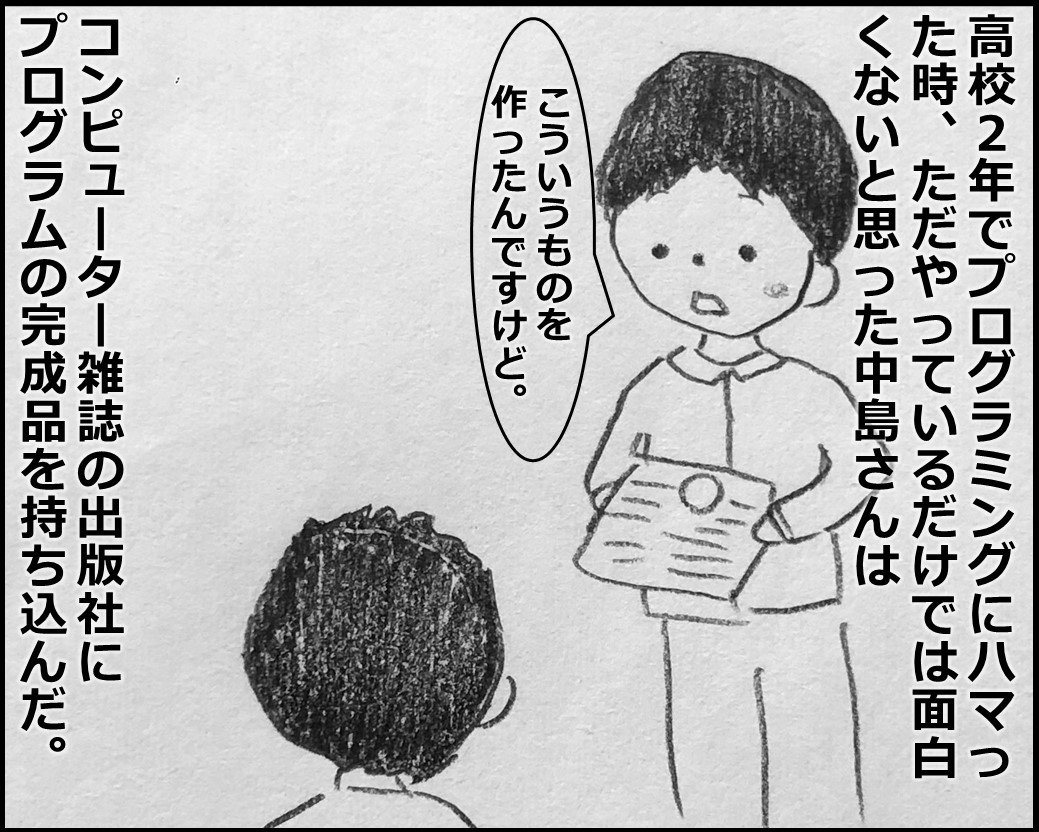 高校２年でプログラミングにハマっ
た時、ただやっているだけでは面白
くないと思った中島さんは
こういうものを
作ったんですけど。
コンピューター雑誌の出版社に
プログラムの完成品を持ち込んだ。